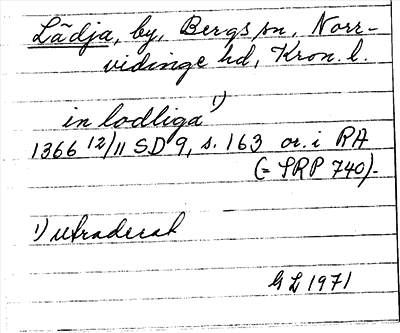 Lädja, by, Bergs sn, Norr-
vidinge hd, Kron. l.
in lodliga 1)
1366 12/11 SD 9, s. 163 or. i RA
(= SRP 740).
1) utraderat
G L 1971